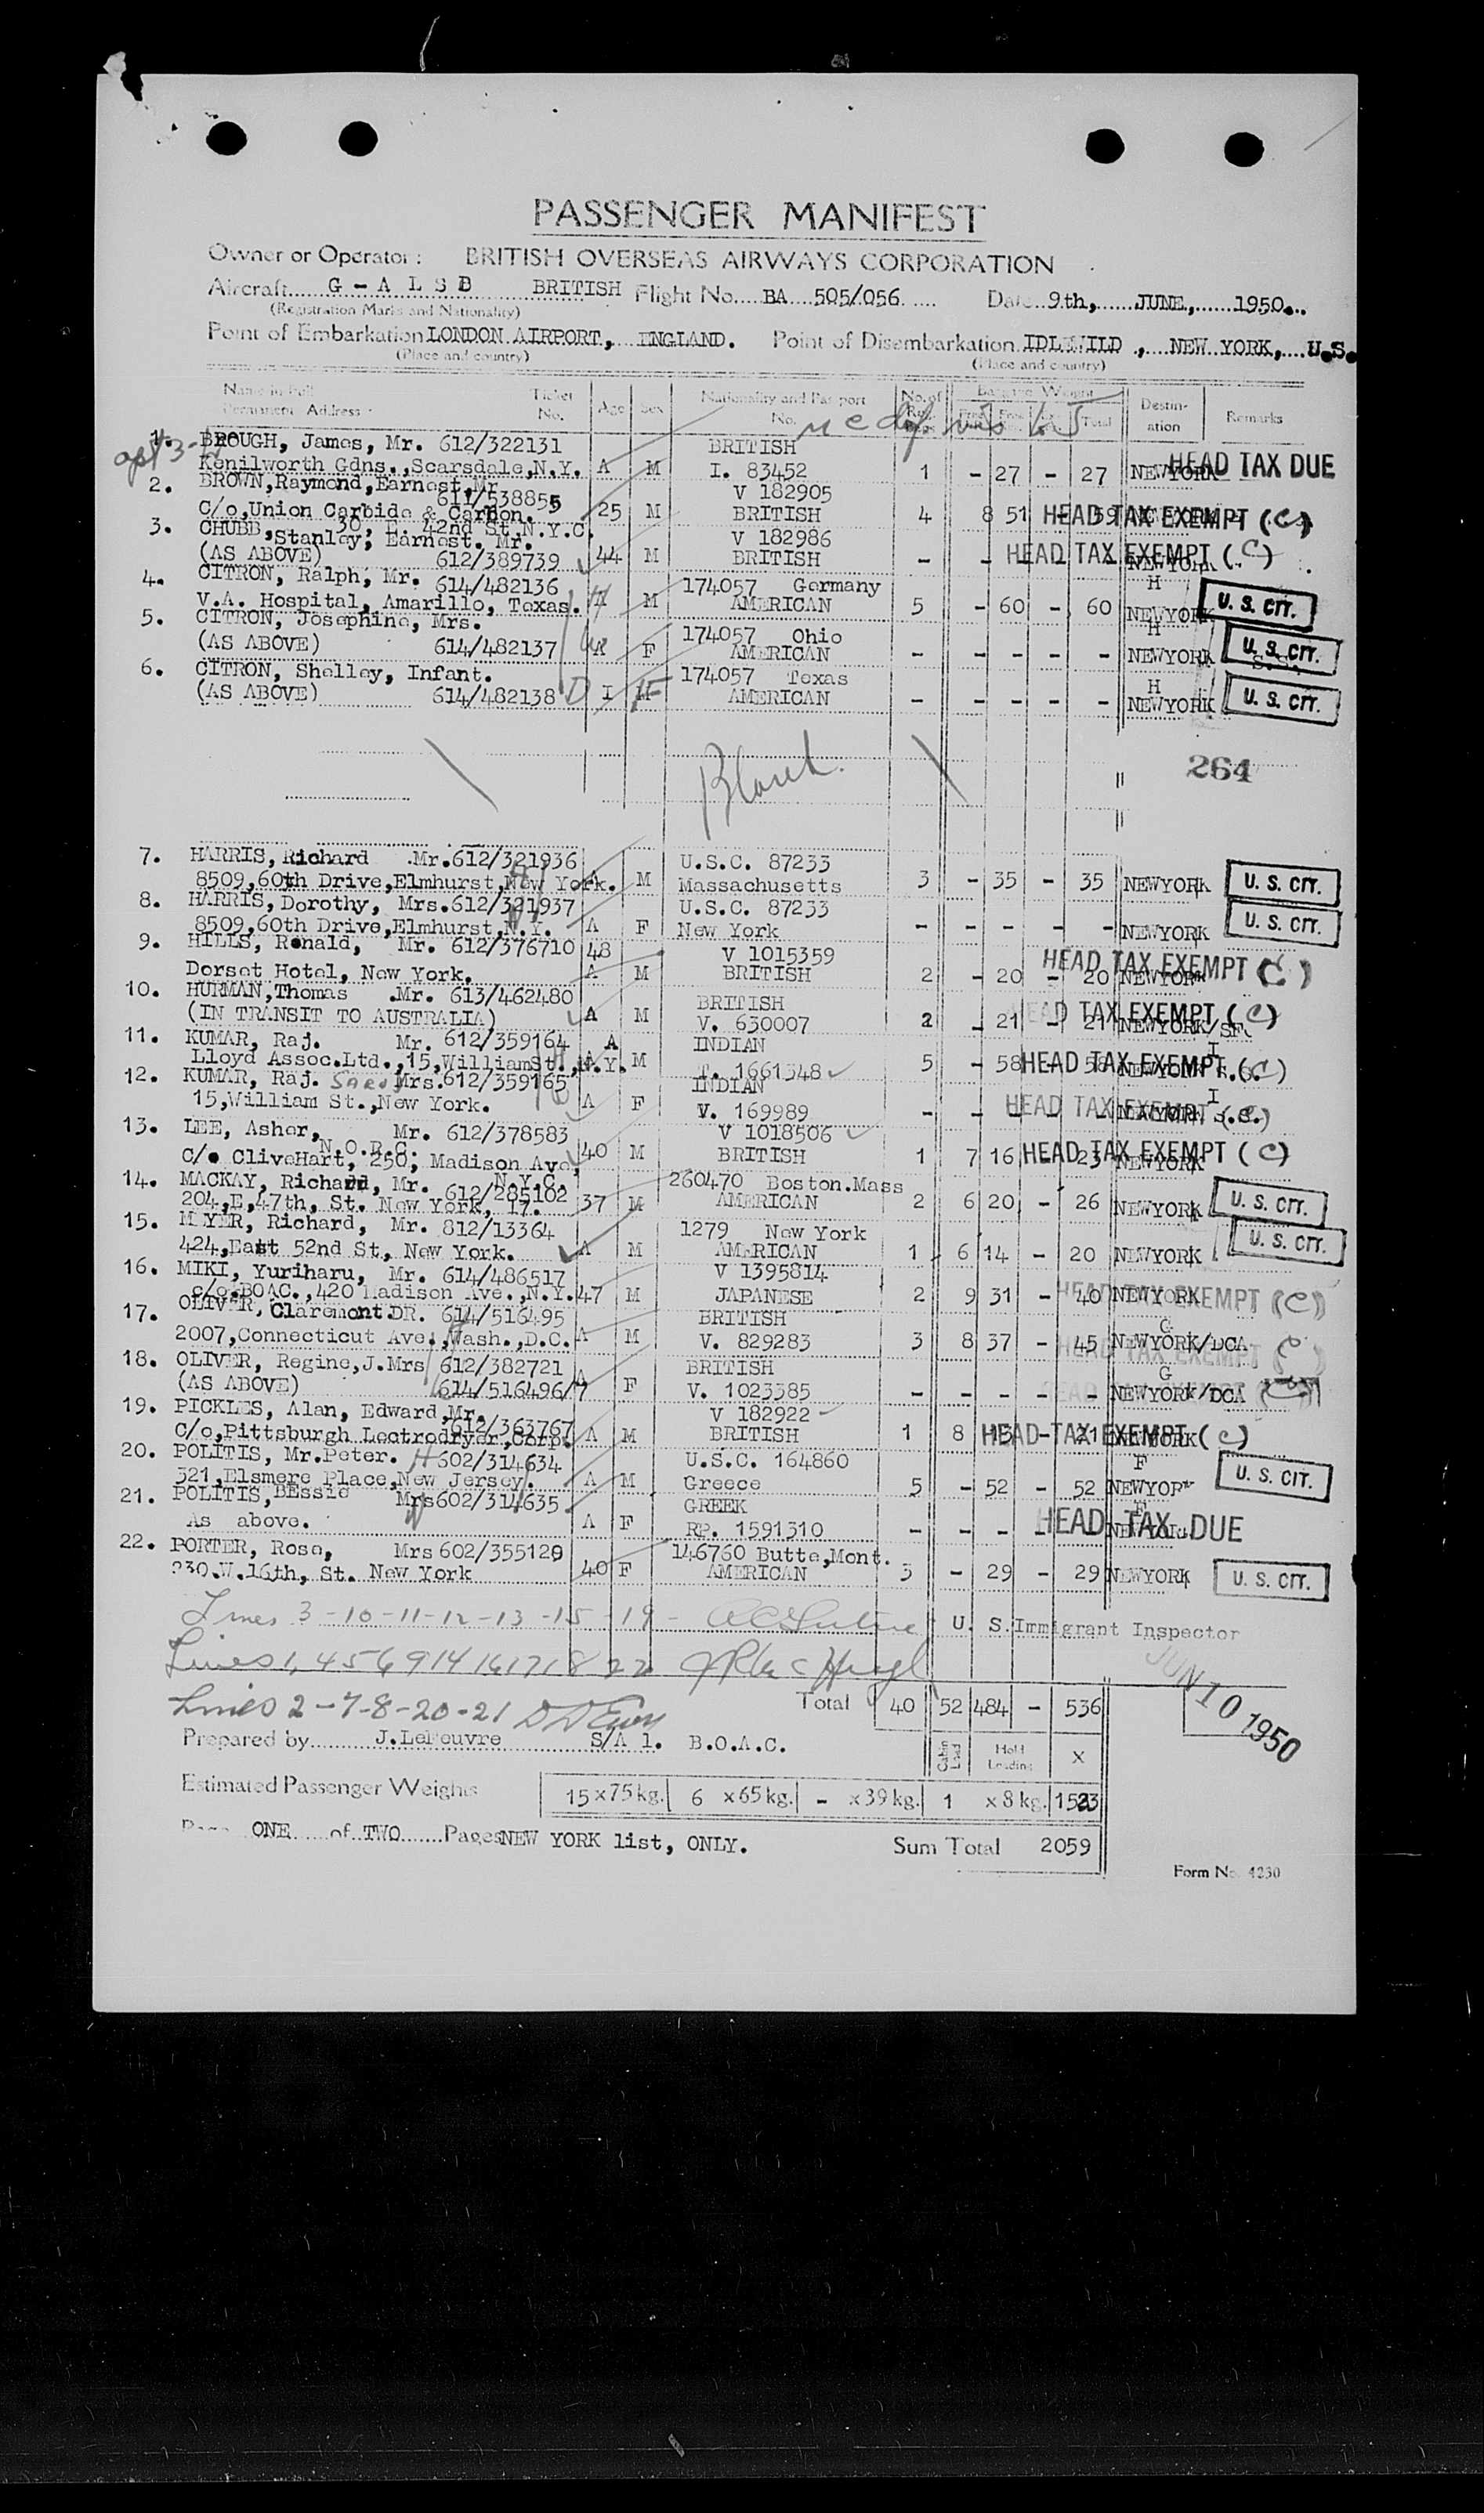 PASSENGER MANIFEST
Owner or Operator : BRITISH OVERSEAS AIRWAYS CORPORATION
Aircraft G - A L S D BRITISH Flight No. BA 505/056 Date 9th, JUNE, 1950.
(Registration Marks and Nationality)
Point of Embarkation LONDON AIRPORT, ENGLAND. Point of Disembarkation IDLEWILD , NEW YORK, U.S.
(Place and country) (Place and country)
Name in Full Ticket Age Sex Nationality and Passport No. of Baggage Weight Destin- Remarks
Permanent Address No. No. Total ation
1. BROUGH, James, Mr. 612/322131 BRITISH
Kenilworth Gdns.,Scarsdale,N.Y. A M I. 83452 1 - 27 - 27 NEWYORK HEAD TAX DUE
2. BROWN,Raymond,Earnest,Mr. V 182905
611/538855
C/o,Union Carbide & Carbon. 25 M BRITISH 4 8 51 - 59 HEAD TAX EXEMPT (C)
30, E. 42nd St,N.Y.C.
3. CHUBB,Stanley, Earnest. Mr. V 182986
(AS ABOVE) 612/389739 44 M BRITISH - - HEAD TAX EXEMPT (C) NEWYORK
4. CITRON, Ralph, Mr. 614/482136 174057 Germany H
V.A. Hospital, Amarillo, Texas. A M AMERICAN 5 - 60 - 60 NEWYORK U. S. CIT.
5. CITRON, Josephine, Mrs. 174057 Ohio H
(AS ABOVE) 614/482137 F AMERICAN - - - - - NEWYORK U. S. CIT.
6. CITRON, Shelley, Infant. 174057 Texas H
(AS ABOVE) 614/482138 I F AMERICAN - - - - - NEWYORK U. S. CIT.
Blank.
264
7. HARRIS,Richard Mr.612/321936 U.S.C. 87233
8509,60th Drive,Elmhurst,New York. A M Massachusetts 3 - 35 - 35 NEWYORK U. S. CIT.
8. HARRIS,Dorothy, Mrs.612/321937 U.S.C. 87233
8509,60th Drive,Elmhurst,N.Y. A F New York - - - - - NEWYORK U. S. CIT.
9. HILLS, Ronald, Mr. 612/376710 48 V 1015359
Dorset Hotel, New York. A M BRITISH 2 - 20 - 20 NEWYORK HEAD TAX EXEMPT (C)
10. HURMAN,Thomas .Mr. 613/462480 BRITISH
(IN TRANSIT TO AUSTRALIA) A M V. 630007 2 - 21 - 21 NEWYORK/SF. HEAD TAX EXEMPT (C)
11. KUMAR, Raj. Mr. 612/359164 A INDIAN I
Lloyd Assoc.Ltd.,15,WilliamSt.,N.Y. M T. 1661348 5 - 58 - 58 NEWYORK HEAD TAX EXEMPT (C)
12. KUMAR, Raj. Mrs.612/359165 INDIAN I
15,William St.,New York. A F V. 169989 - - - HEAD TAX EXEMPT (C)
13. LEE, Asher, Mr. 612/378583 V 1018506
N.O.R.C.
C/o CliveHart, 250, Madison Ave, 40 M BRITISH 1 7 16 - 23 NEWYORK HEAD TAX EXEMPT (C)
N.Y.C.
14. MACKAY, Richard, Mr. 612/285102 260470 Boston.Mass
204,E,47th, St. New York, 17. 37 M AMERICAN 2 6 20 - 26 NEWYORK U. S. CIT.
15. MEYER, Richard, Mr. 812/13364 1279 New York
424,East 52nd St, New York. A M AMERICAN 1 6 14 - 20 NEWYORK U. S. CIT.
16. MIKI, Yuriharu, Mr. 614/486517 V 1395814
c/o.BOAC.,420 Madison Ave.,N.Y. 47 M JAPANESE 2 9 31 - 40 NEWYORK HEAD TAX EXEMPT (C)
17. OLIVER, Claremont.DR. 614/516495 BRITISH G
2007,Connecticut Ave.,Wash.,D.C. A M V. 829283 3 8 37 - 45 NEWYORK/DCA HEAD TAX EXEMPT (C)
18. OLIVER, Regine,J.Mrs 612/382721 BRITISH G
(AS ABOVE) 614/516496/7 A F V. 1023385 - - - - - NEWYORK/DCA
19. PICKLES, Alan, Edward,Mr. V 182922
612/363767
C/o,Pittsburgh Lectrodryer,Corp. A M BRITISH 1 8 13 - 21 NEWYORK HEAD TAX EXEMPT (C)
20. POLITIS, Mr.Peter. 602/314634 U.S.C. 164860 F
321,Elsmere Place,New Jersey. A M Greece 5 - 52 - 52 NEWYORK U. S. CIT.
21. POLITIS,BEssie Mrs602/314635 GREEK F
As above. A F RP. 1591310 - - - - - HEAD TAX DUE
22. PORTER, Rose, Mrs 602/355129 146760 Butte,Mont.
230.W.16th, St. New York 40 F AMERICAN 3 - 29 - 29 NEWYORK U. S. CIT.
Lines 3-10-11-12-13-15-19- U. S. Immigrant Inspector
Lines 1, 4 5 6 9 14 16 17 18 22
JUN 10 1950
Lines 2-7-8-20-21
Total 40 52 484 - 536
Prepared by J.LePouvre S/A 1. B.O.A.C. Cabin Load Hold Loading X
Estimated Passenger Weights 15 x 75 kg. 6 x 65 kg. - x 39 kg. 1 x 8 kg. 1523
Page ONE of TWO Pages NEW YORK list, ONLY. Sum Total 2059
Form No. 4230